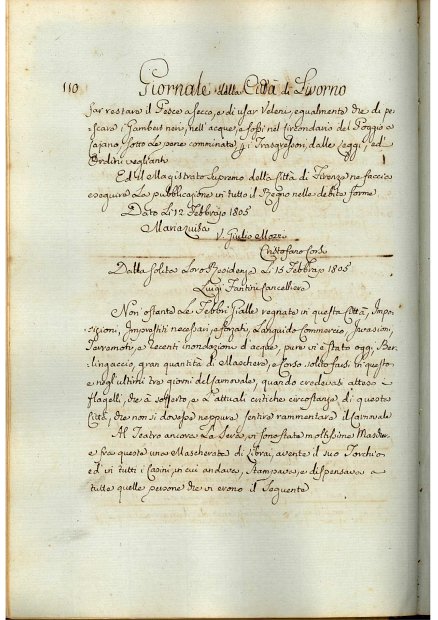 110 Giornale della Città di Livorno
far restare il Pesce a secco, e di usar Veleni, egualmente che di pe-
scare i Gamberi neri, nell'acque, e fossi nel circondario del Poggio a
Cajano, sotto le pene comminate p i Trasgressori, dalle Leggi, ed
Ordini veglianti
Ed il Magistrato Supremo della Città di Firenze ne faccia
eseguire la pubblicazione in tutto il Regno nelle debite forme
Dato li 12 Febbrajo 1805
Maria Luisa
V. Giulio Mozzi
Cristofano
Dalla Solita Loro Residenza Li 15 Febbrajo 1805
Luigi Fantini Cancelliere
Non ostante le Febbri Gialle regnate in questa Città, Impo-
sizioni, Imprestiti necessari, e forzati, Languido Commercio, Invasioni,
Terremoti, e recenti inondazioni d'acque, pure vi è stato oggi, Ber-
lingaccio, gran quantità di Maschere, e Corso solito farsi in questo
e negl'ultimi tre giorni del Carnevale, quando credevasi atteso i
flagelli, che à sofferto, e l'attuali critiche circostanze di questa
Città, che non si dovesse neppure sentire rammentare il Carnevale
Al Teatro ancora la Sera, vi sono state moltissime Maschere,
e fra queste una Mascherata di Librai, avente il suo Torchio
ed in tutti i Casini, in cui andava, stampava, e dispensava a
tutte quelle persone che vi erono il Seguente